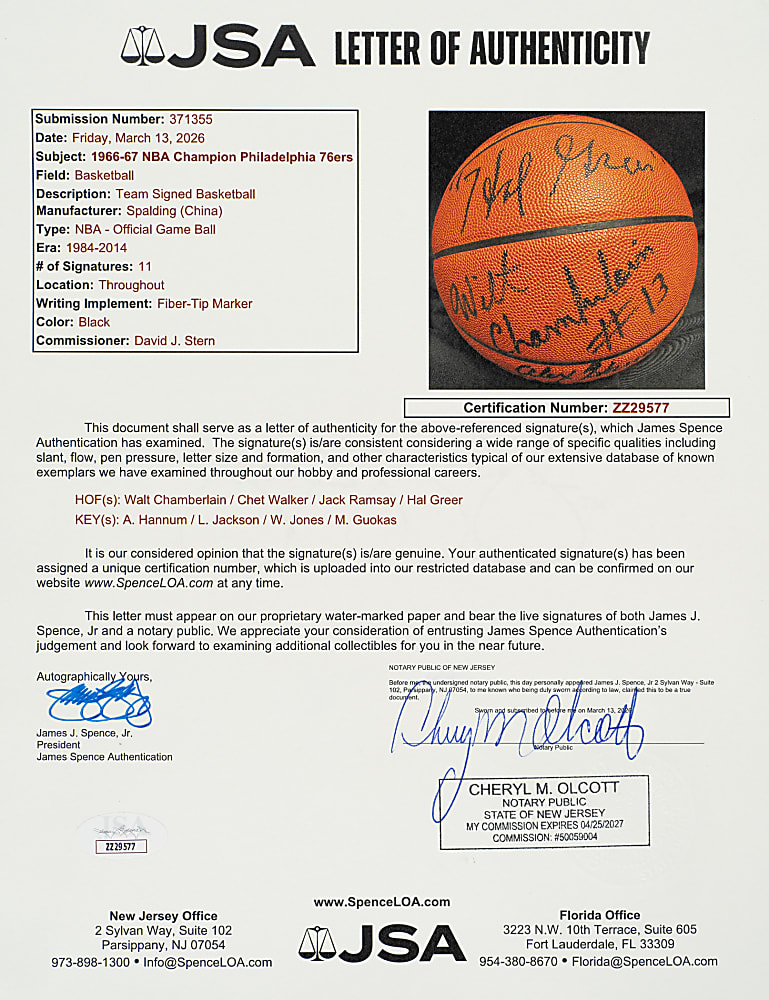 JSA LETTER OF AUTHENTICITY
Submission Number: 371355
Date: Friday, March 13, 2026
Subject: 1966-67 NBA Champion Philadelphia 76ers
Field: Basketball
Description: Team Signed Basketball
Manufacturer: Spalding (China)
Type: NBA - Official Game Ball
Era: 1984-2014
# of Signatures: 11
Location: Throughout
Writing Implement: Fiber-Tip Marker
Color: Black
Commissioner: David J. Stern
Hal Greer
Wilt
Chamberlain
#13
Certification Number: ZZ29577
This document shall serve as a letter of authenticity for the above-referenced signature(s), which James Spence
Authentication has examined. The signature(s) is/are consistent considering a wide range of specific qualities including
slant, flow, pen pressure, letter size and formation, and other characteristics typical of our extensive database of known
exemplars we have examined throughout our hobby and professional careers.
HOF(s): Walt Chamberlain / Chet Walker / Jack Ramsay / Hal Greer
KEY(s): A. Hannum / L. Jackson / W. Jones / M. Guokas
It is our considered opinion that the signature(s) is/are genuine. Your authenticated signature(s) has been
assigned a unique certification number, which is uploaded into our restricted database and can be confirmed on our
website www.SpenceLOA.com at any time.
This letter must appear on our proprietary water-marked paper and bear the live signatures of both James J.
Spence, Jr and a notary public. We appreciate your consideration of entrusting James Spence Authentication's
judgement and look forward to examining additional collectibles for you in the near future.
Autographically Yours,
James J. Spence, Jr.
President
James Spence Authentication
NOTARY PUBLIC OF NEW JERSEY
Before me, the undersigned notary public, this day personally appeared James J. Spence, Jr 2 Sylvan Way - Suite
102, Parsippany, NJ 07054, to me known who being duly sworn according to law, claimed this to be a true
document.
Sworn and subscribed to before me on March 13, 2026
Cheryl M Olcott
Notary Public
CHERYL M. OLCOTT
NOTARY PUBLIC
STATE OF NEW JERSEY
MY COMMISSION EXPIRES 04/25/2027
COMMISSION: #50059004
JSA
ZZ29577
www.SpenceLOA.com
New Jersey Office
2 Sylvan Way, Suite 102
Parsippany, NJ 07054
973-898-1300 • Info@SpenceLOA.com
JSA
Florida Office
3223 N.W. 10th Terrace, Suite 605
Fort Lauderdale, FL 33309
954-380-8670 • Florida@SpenceLOA.com